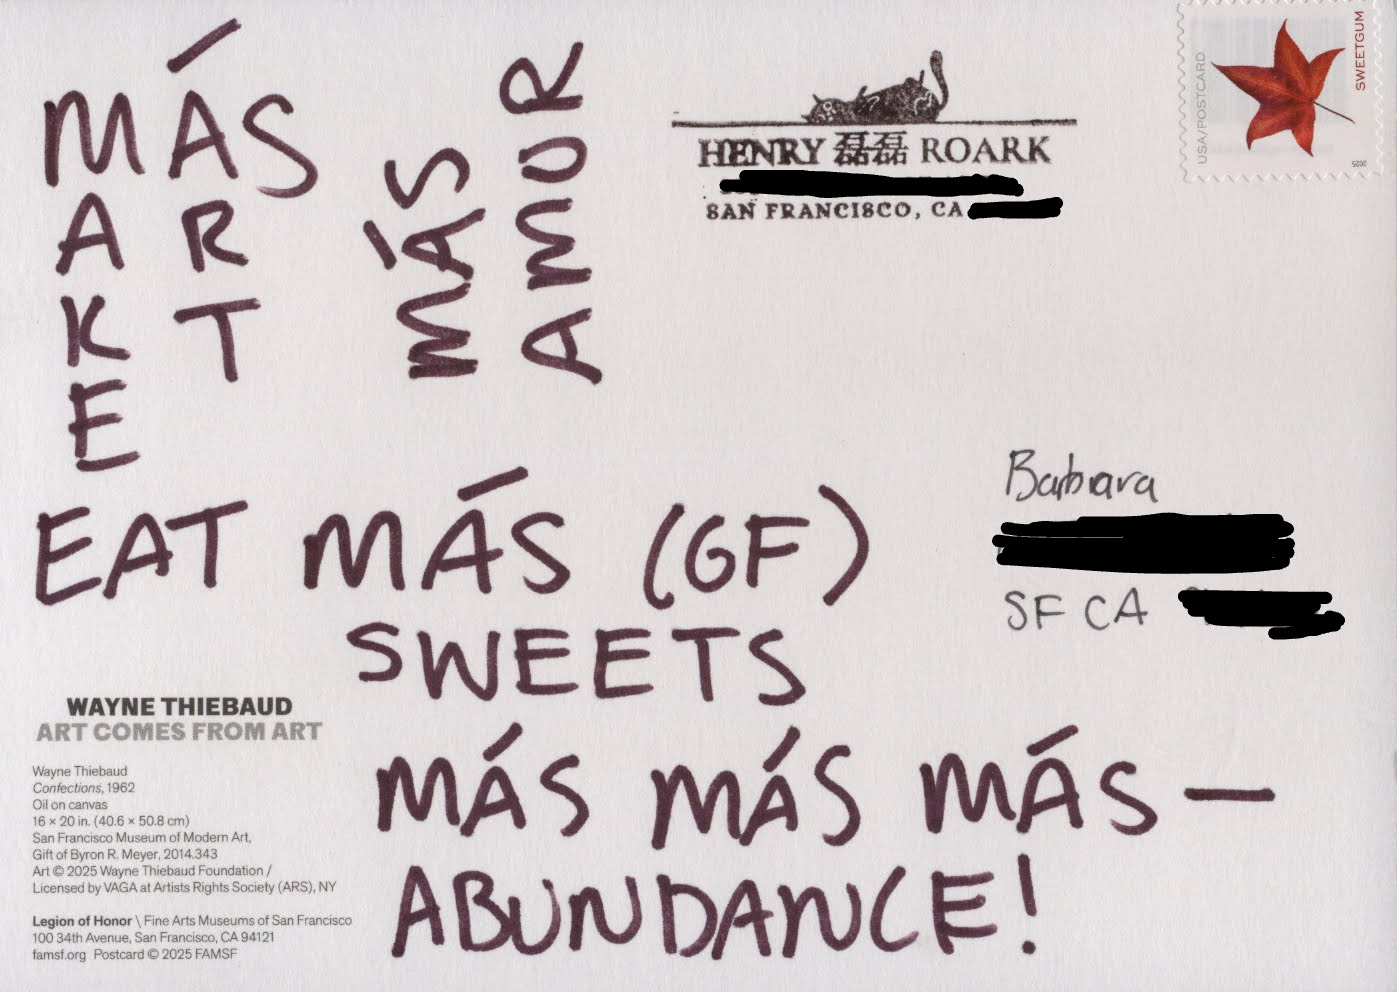 MÁS
MAKE
ART
MÁS
AMOR
EAT MÁS (GF)
SWEETS
MÁS MÁS MÁS —
ABUNDANCE!
HENRY 磊磊 ROARK
SAN FRANCISCO, CA
USA/POSTCARD
SWEETGUM
2025
Barbara
SF CA
WAYNE THIEBAUD
ART COMES FROM ART
Wayne Thiebaud
Confections, 1962
Oil on canvas
16 × 20 in. (40.6 × 50.8 cm)
San Francisco Museum of Modern Art,
Gift of Byron R. Meyer, 2014.343
Art © 2025 Wayne Thiebaud Foundation /
Licensed by VAGA at Artists Rights Society (ARS), NY
Legion of Honor \ Fine Arts Museums of San Francisco
100 34th Avenue, San Francisco, CA 94121
famsf.org Postcard © 2025 FAMSF